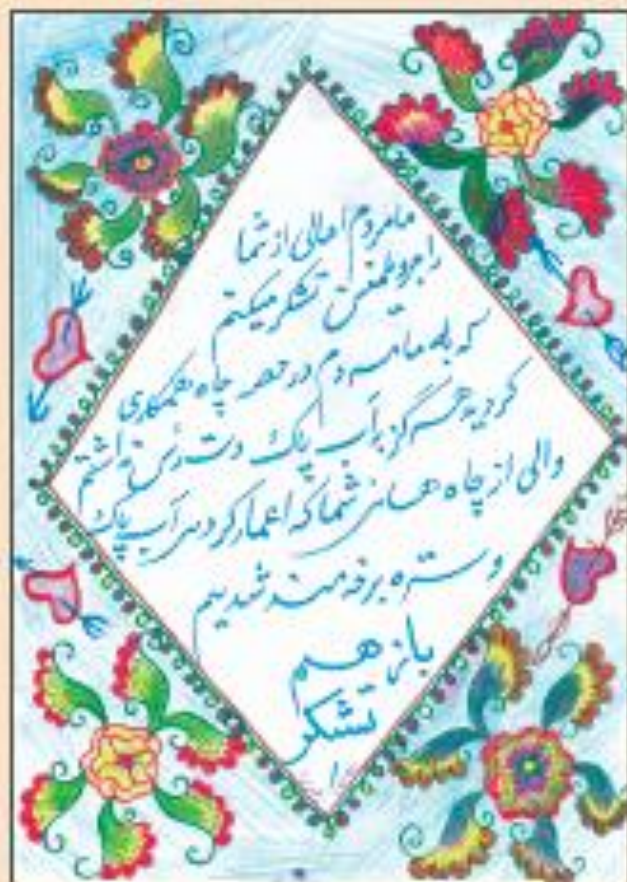 ما مردم اهالی از شما
تشکر میکنم
که به ما مردم در حصه چاه همکاری
کردید هرگز به آب پاک دست رسی نداشتم
والی از چاه های شما که اعمار کردی آب پاک
و ستره برخه مند شدیم
باز هم
تشکر